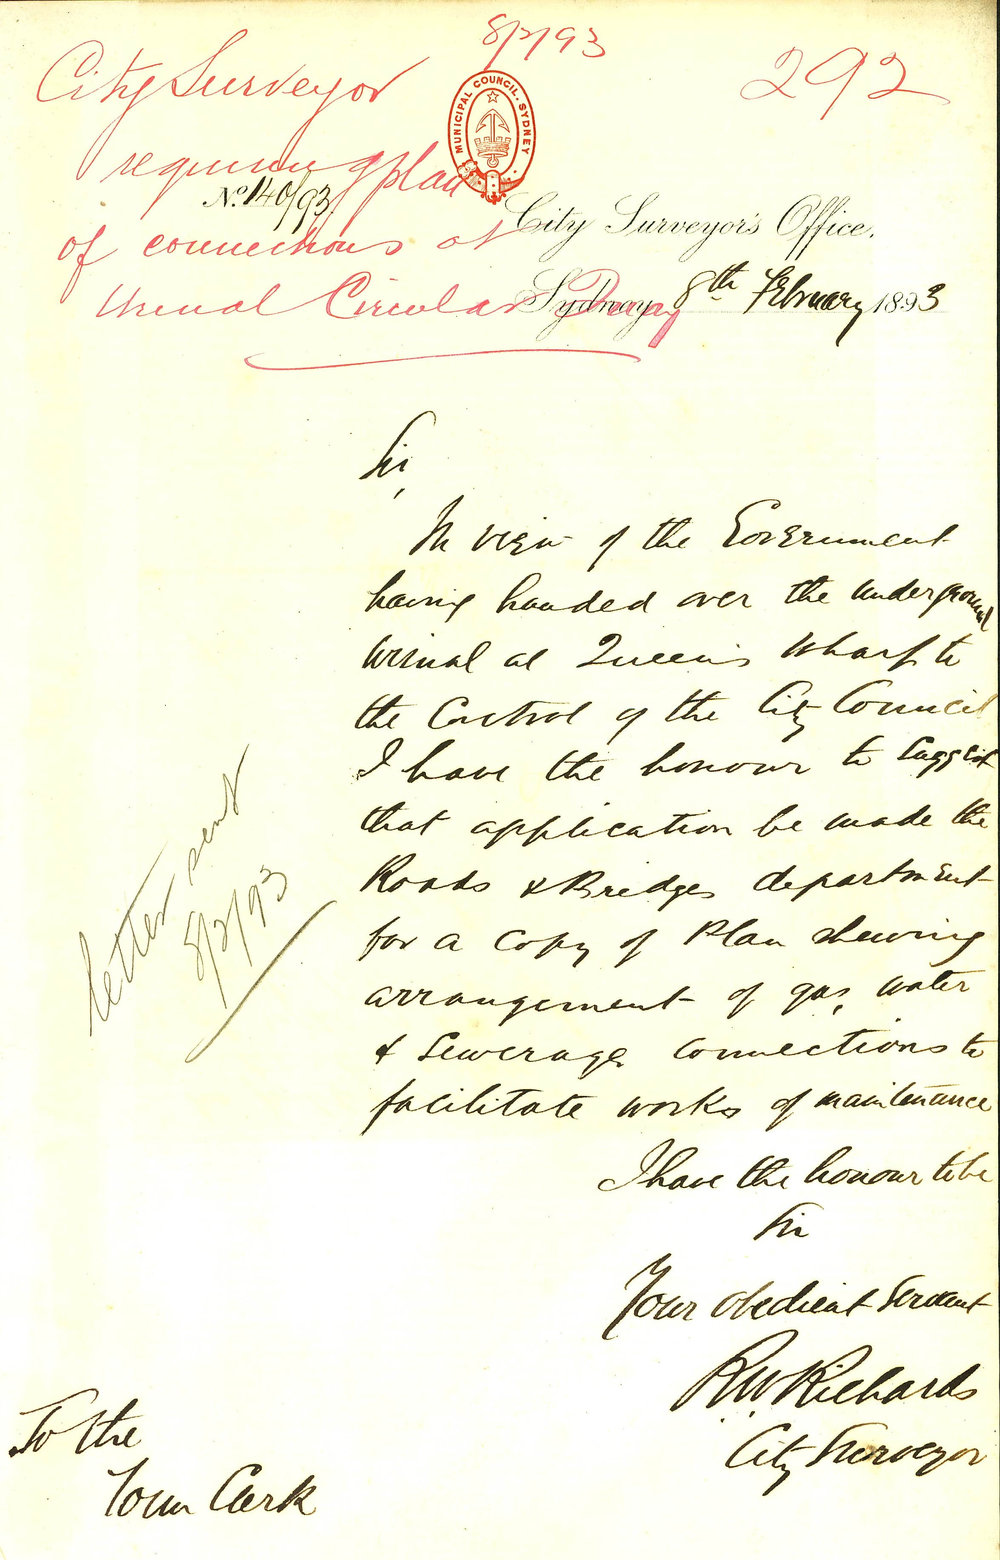 8/2/93
292
City Surveyor
requiring plan
of connections at
Urinal Circular Quay
MUNICIPAL COUNCIL. SYDNEY
No. 140/93
City Surveyor's Office,
Sydney 8th February 1893
Sir,
In view of the Government
having handed over the underground
Urinal at Queen's Wharf to
the Control of the City Council
I have the honour to suggest
that application be made the
Roads & Bridges department
for a copy of Plan shewing
arrangement of gas, water
& Sewerage connections to
facilitate works of maintenance
letter sent
8/2/93
I have the honour to be
Sir
Your obedient Servant
R.W. Richards
City Surveyor
To the
Town Clerk